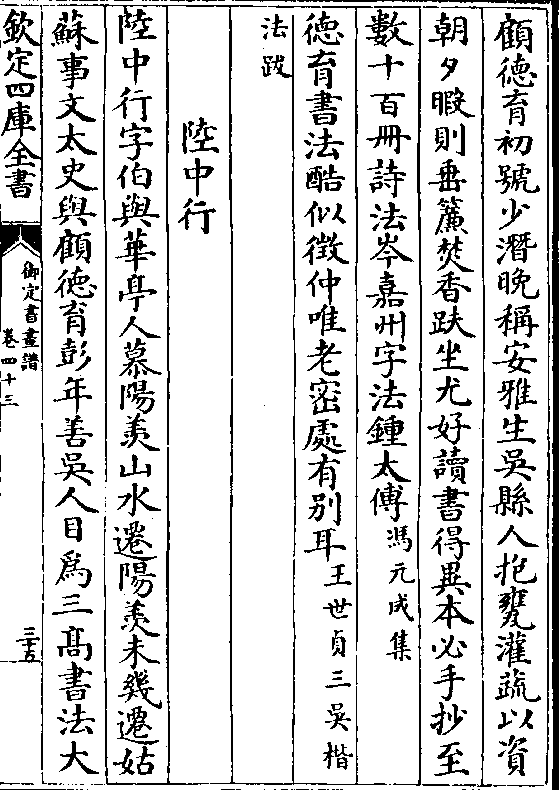 顧德育初號少潛晚稱安雅生吳縣人抱甕灌蔬以資
朝夕暇則垂簾焚香趺坐尤好讀書得異本必手抄至
數十百冊詩法岑嘉州字法鍾太傅馮元成集
德育書法酷似徵仲唯老密處有别耳王世貞三吳楷
法跋
陸中行
陸中行字伯與華亭人慕陽羨山水遷陽羨未幾遷姑
蘇事文太史與顧德育彭年善吳人目爲三髙書法大
欽定四庫全書
御定書畫譜
卷四十三
三十五